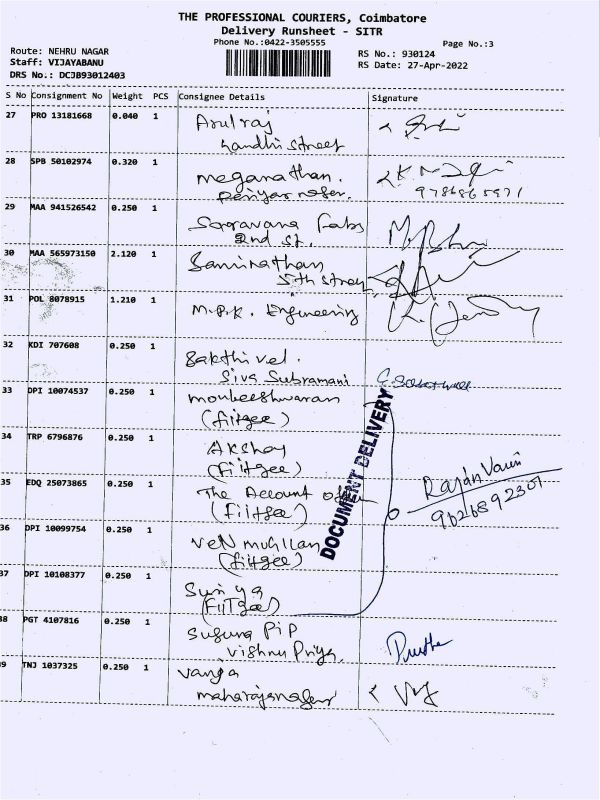 THE PROFESSIONAL COURIERS, Coimbatore
Delivery Runsheet - SITR
Phone No.:0422-3505555
Page No.:3
Route: NEHRU NAGAR
RS No.: 930124
Staff: VIJAYABANU
RS Date: 27-Apr-2022
DRS No.: DCJB93012403
S No Consignment No Weight PCS Consignee Details Signature
27 PRO 13181668 0.040 1 Arulraj
Gandhi Street
28 SPB 50102974 0.320 1 Meganathan.
Periyar nager.
9786865971
29 MAA 941526542 0.250 1 Saravana Fabs
2nd st.
30 MAA 565973150 2.120 1 Saminathan
5th street
31 POL 8078915 1.210 1 M.P.K. Engineering
32 KDI 707608 0.250 1 Sakthivel.
Siva Subramani
33 DPI 10074537 0.250 1 Mouleeshwaran
(fiitgee)
34 TRP 6796876 0.250 1 Akshay
(fiitgee)
35 EDQ 25073865 0.250 1 The Account officer
(fiitgee)
DOCUMENT DELIVERY
9626892301
36 DPI 10099754 0.250 1 Ven mugilan
(fiitgee)
37 DPI 10108377 0.250 1
(FIITgee)
38 PGT 4107816 0.250 1 Suguna PIP
Vishnu Priya
39 TNJ 1037325 0.250 1 Vanja
maharajanager